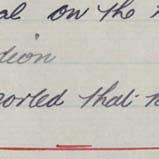 al on the
dion
orted that